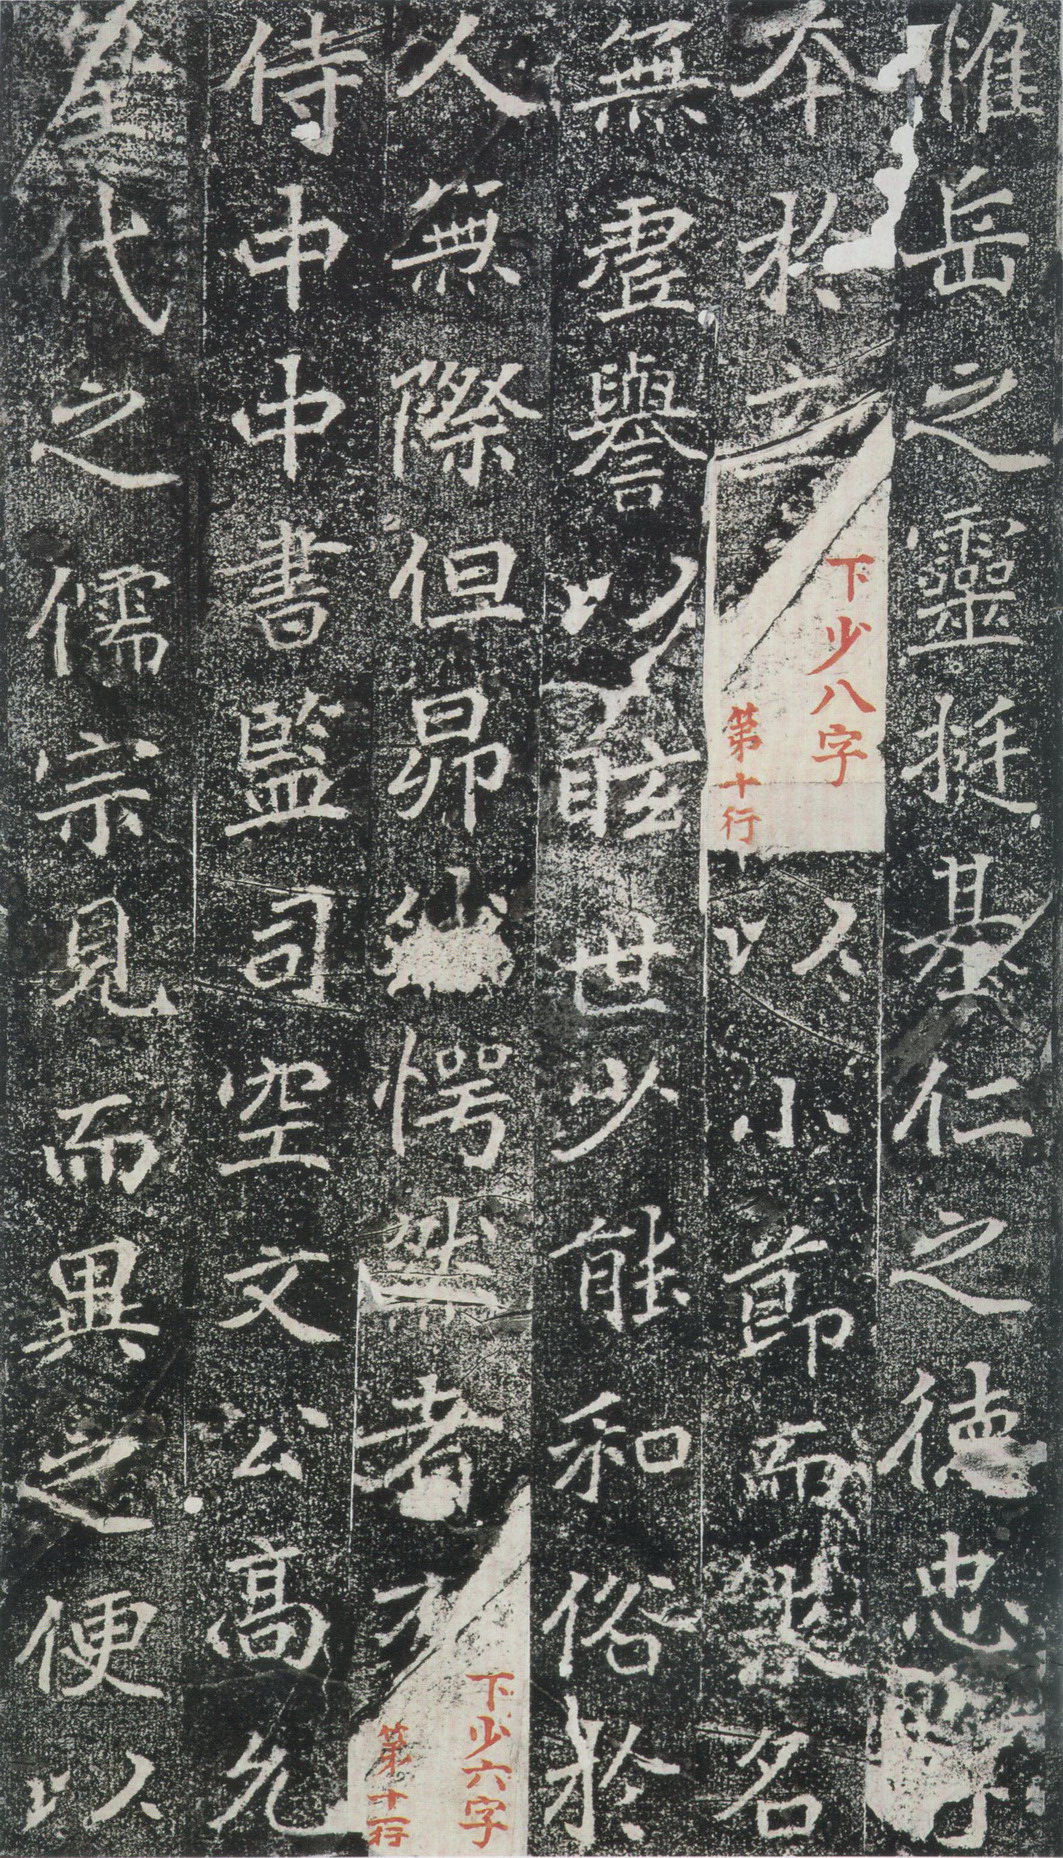 惟岳之靈挺基仁之德忠
本於立
下少八字
第十行
以小節而名
無虛譽以眩世少能和俗於
人無際但昴愕者
下少六字
第十一行
侍中中書監司空文公高允
皇代之儒宗見而異之便以